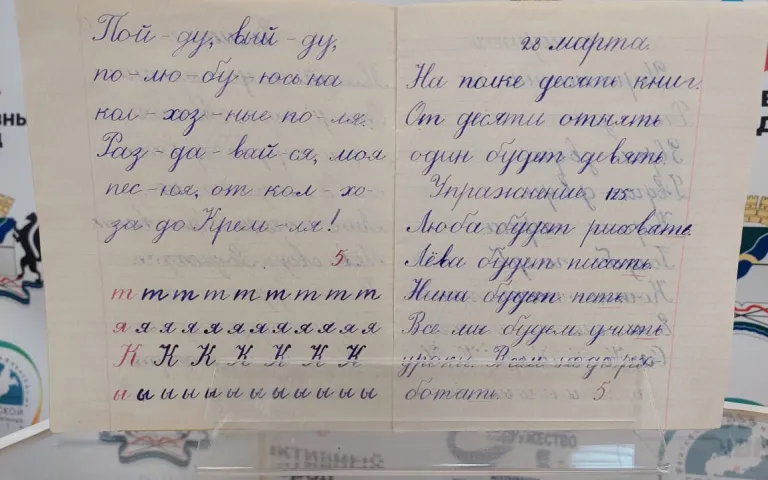 Пой-ду, вый-ду,
по-лю-бу-юсь на
кол-хоз-ные по-ля.
Раз-да-вай-ся, моя
пес-юя, от кол-хо-
за до Крем-ля!
5
т т т т т т т т т т
я я я я я я я я я я я
К К К К К К К
ы ы ы ы ы ы ы ы ы ы ы ы
28 марта.
На полке десять книг.
От десяти отнять
один будет девять.
Упражнение 125.
Люба будет рисовать.
Лёва будет писать.
Нина будет петь.
Все мы будем учить
уроки. Всем надо рабо-
ботать. 5